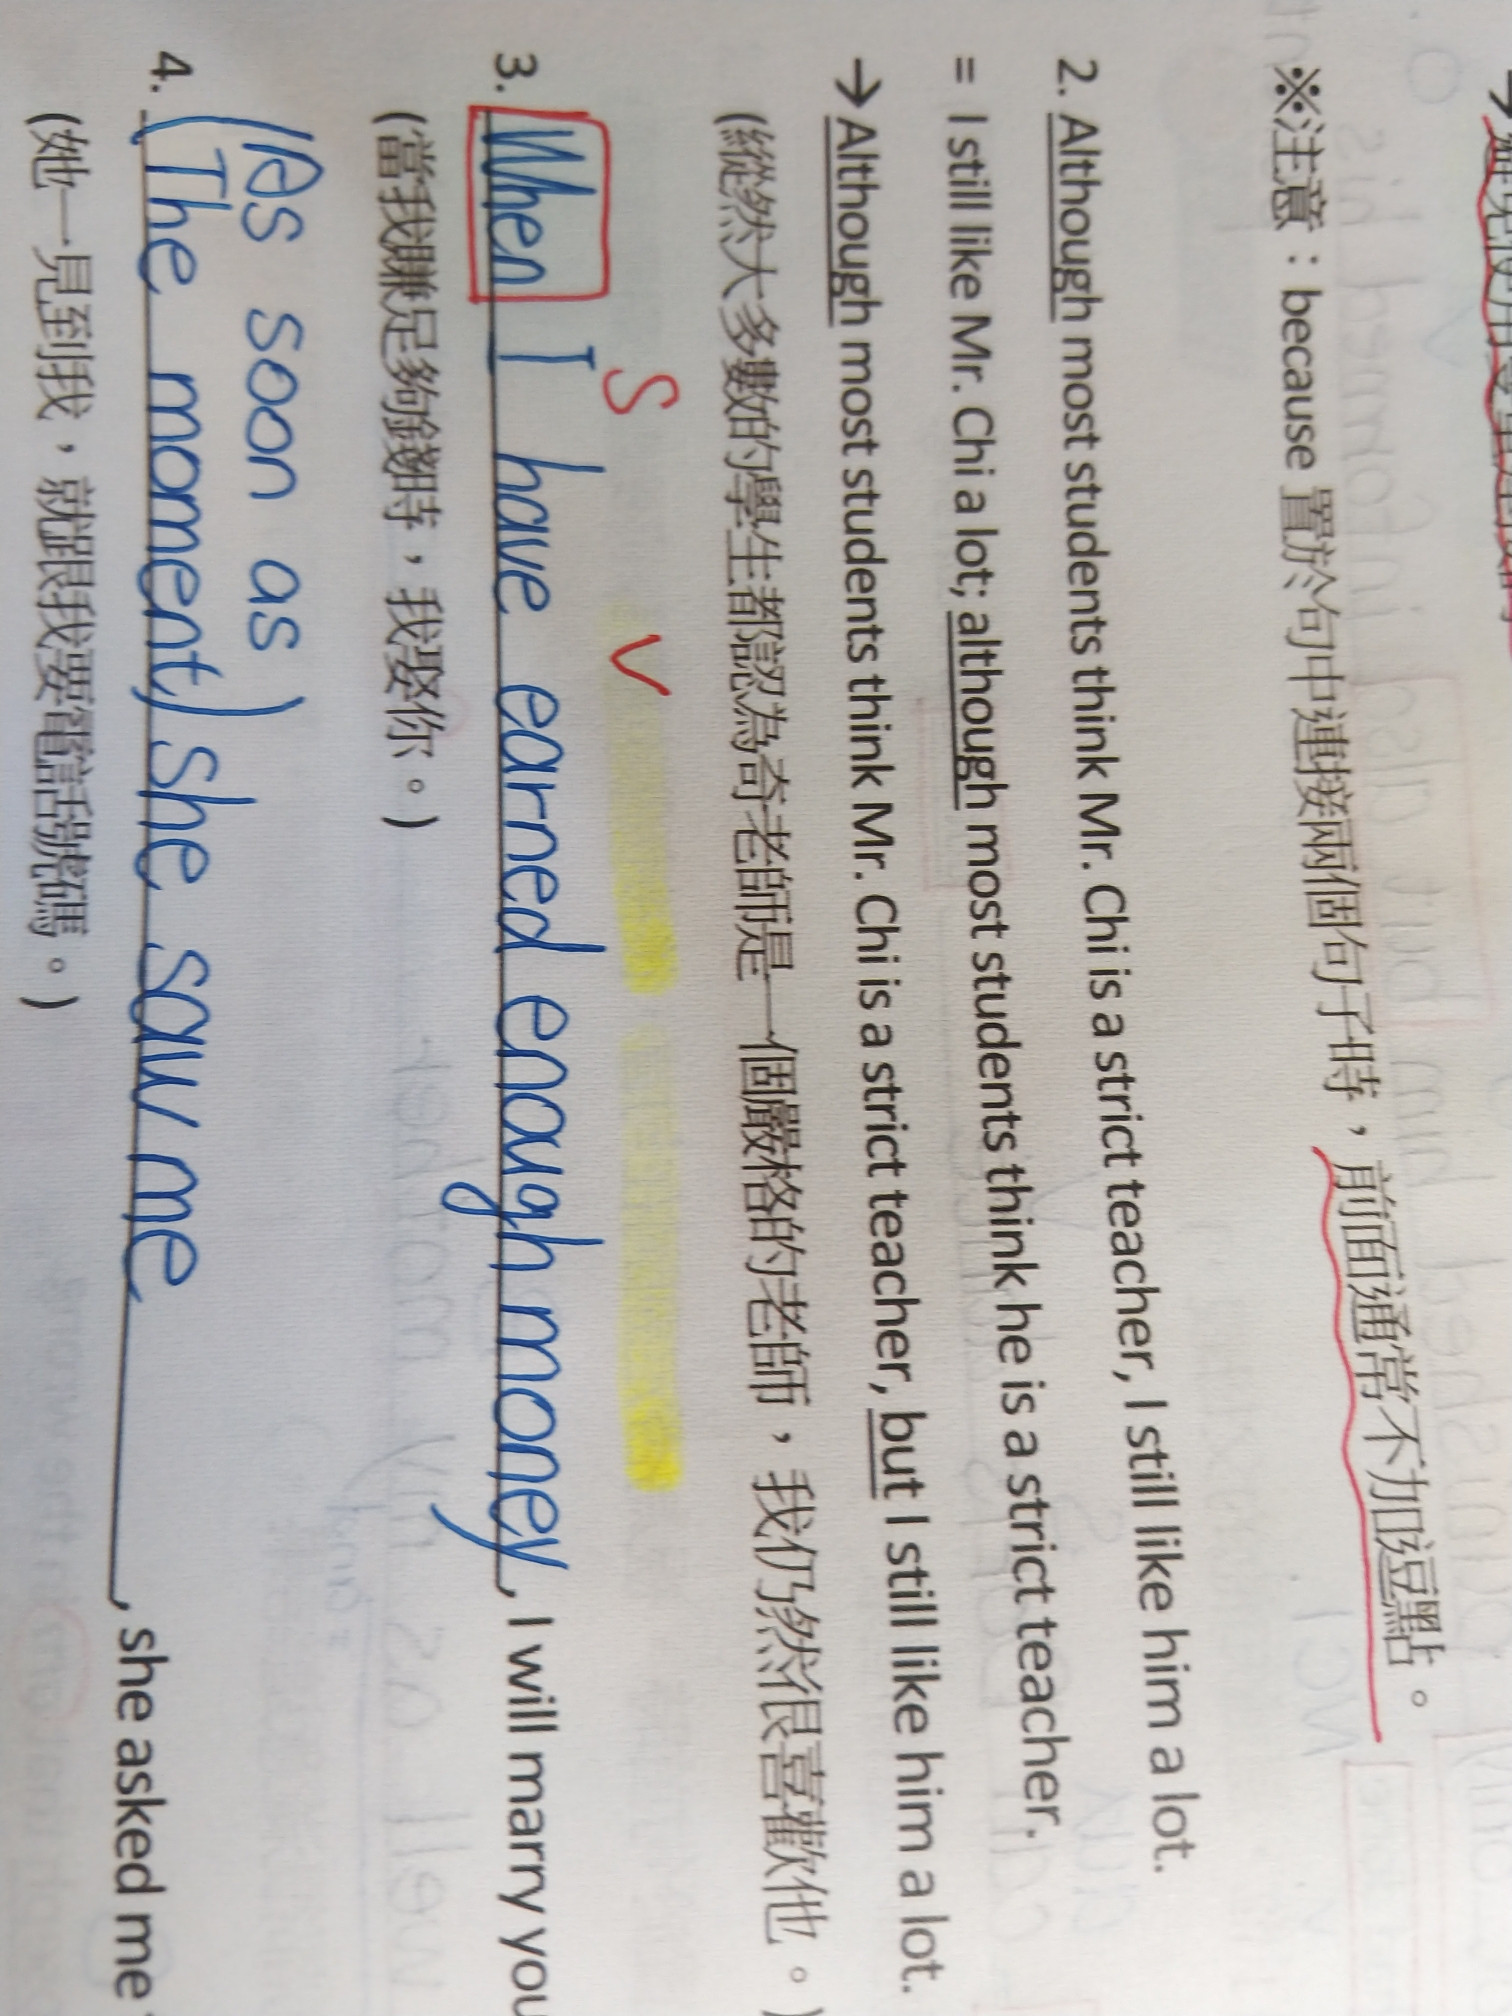 ※注意：because 置於句中連接兩個句子時，前面通常不加逗點。
2. Although most students think Mr. Chi is a strict teacher, I still like him a lot.
= I still like Mr. Chi a lot; although most students think he is a strict teacher.
→ Although most students think Mr. Chi is a strict teacher, but I still like him a lot.
(縱然大多數的學生都認為奇老師是一個嚴格的老師，我仍然很喜歡他。)
S V
3. When I have earned enough money, I will marry you
(當我賺足夠錢時，我娶你。)
(As soon as)
4. (The moment) She saw me, she asked me
(她一見到我，就跟我要電話號碼。)